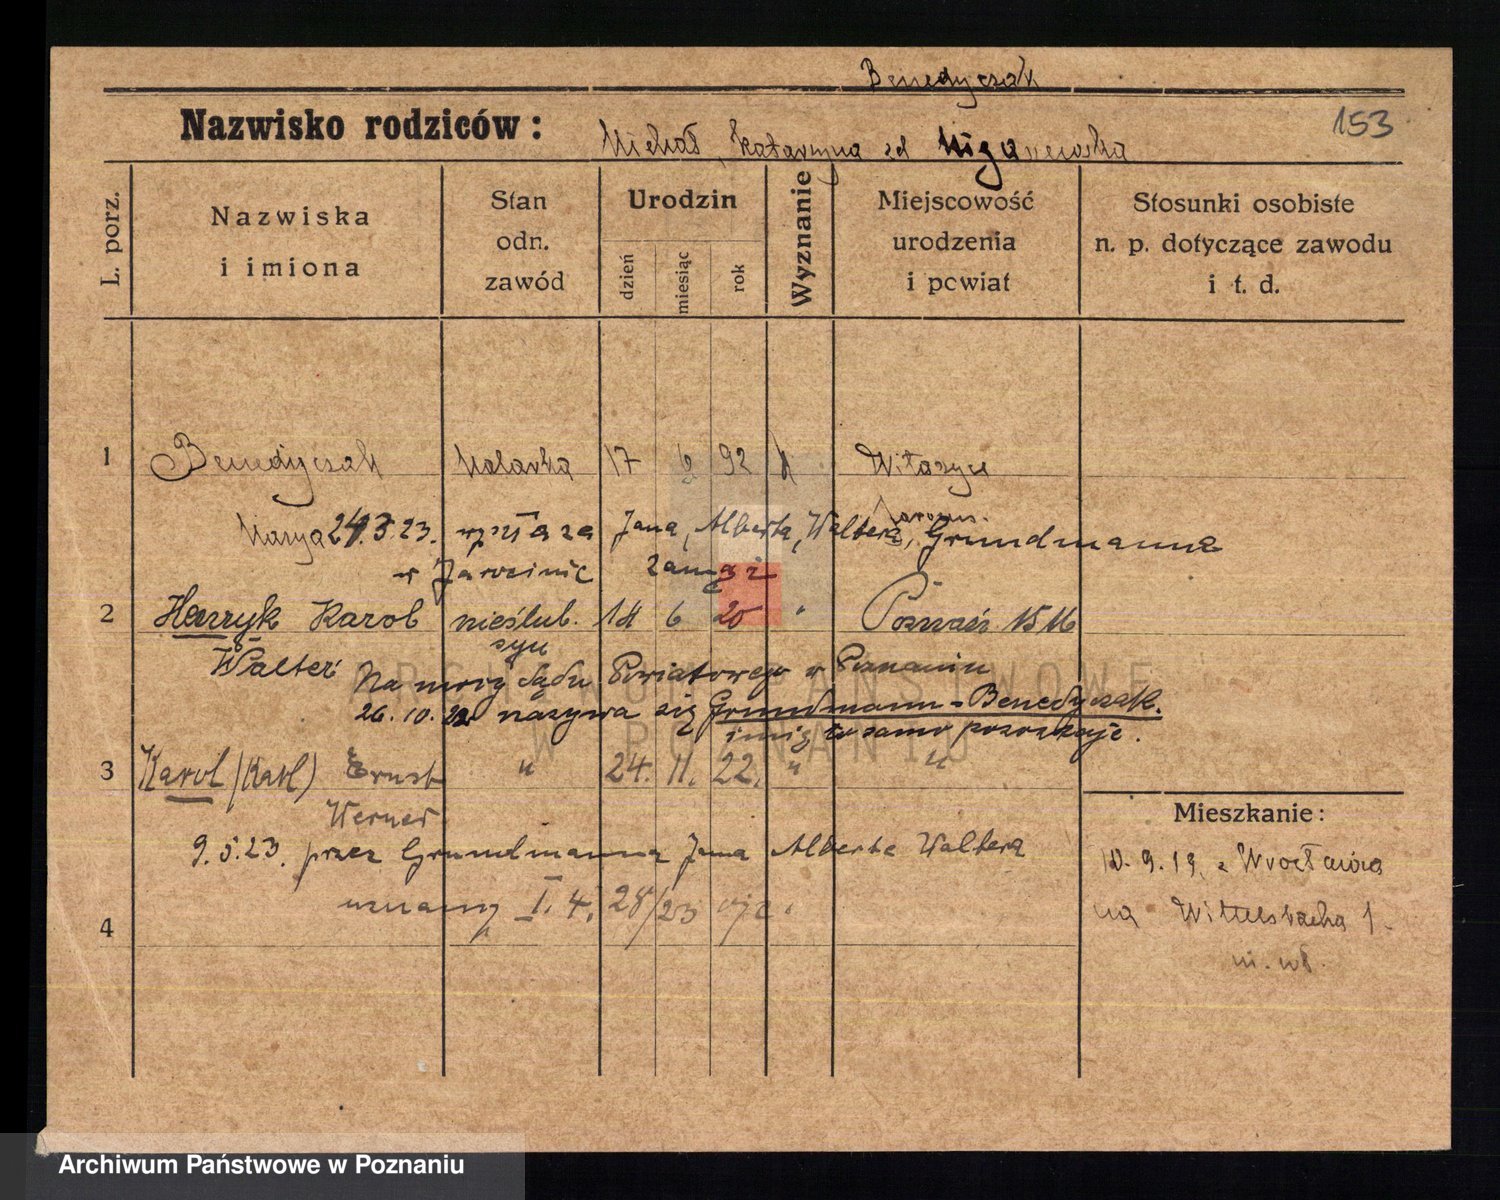 Benedyczak
Nazwisko rodziców:
153
Michał, Katarzyna zd
L. porz.
Nazwiska
i imiona
Stan
odn.
zawód
Urodzin
dzień
miesiąc
rok
Wyznanie
Miejscowość
urodzenia
i powiat
Stosunki osobiste
n. p. dotyczące zawodu
i t. d.
1 Benedyczak 17 6 92 Witaszyce
Marya 24.3.23. wyszła za Jana, Alberta, Waltera, Grundmanna
w Jarocinie zamąż
2 Henryk Karol nieślub. 14 6 20 " Poznań 1516
syn
Walter Na mocy Sądu Powiatowego w Poznaniu
26.10.22 nazywa się Grundmann-Benedyczak.
imię to samo pozostaje.
3 Karol (Karl) Ernst " 24. 11. 22. " "
Werner
9.5.23. przez Grundmanna Jana Alberta Waltera
uznany I. 4. 28/23
4
Mieszkanie:
10.9.19. z Wrocławia
na Wittelsbacha 1.
ARCHIWUM PAŃSTWOWE
W POZNANIU
Archiwum Państwowe w Poznaniu